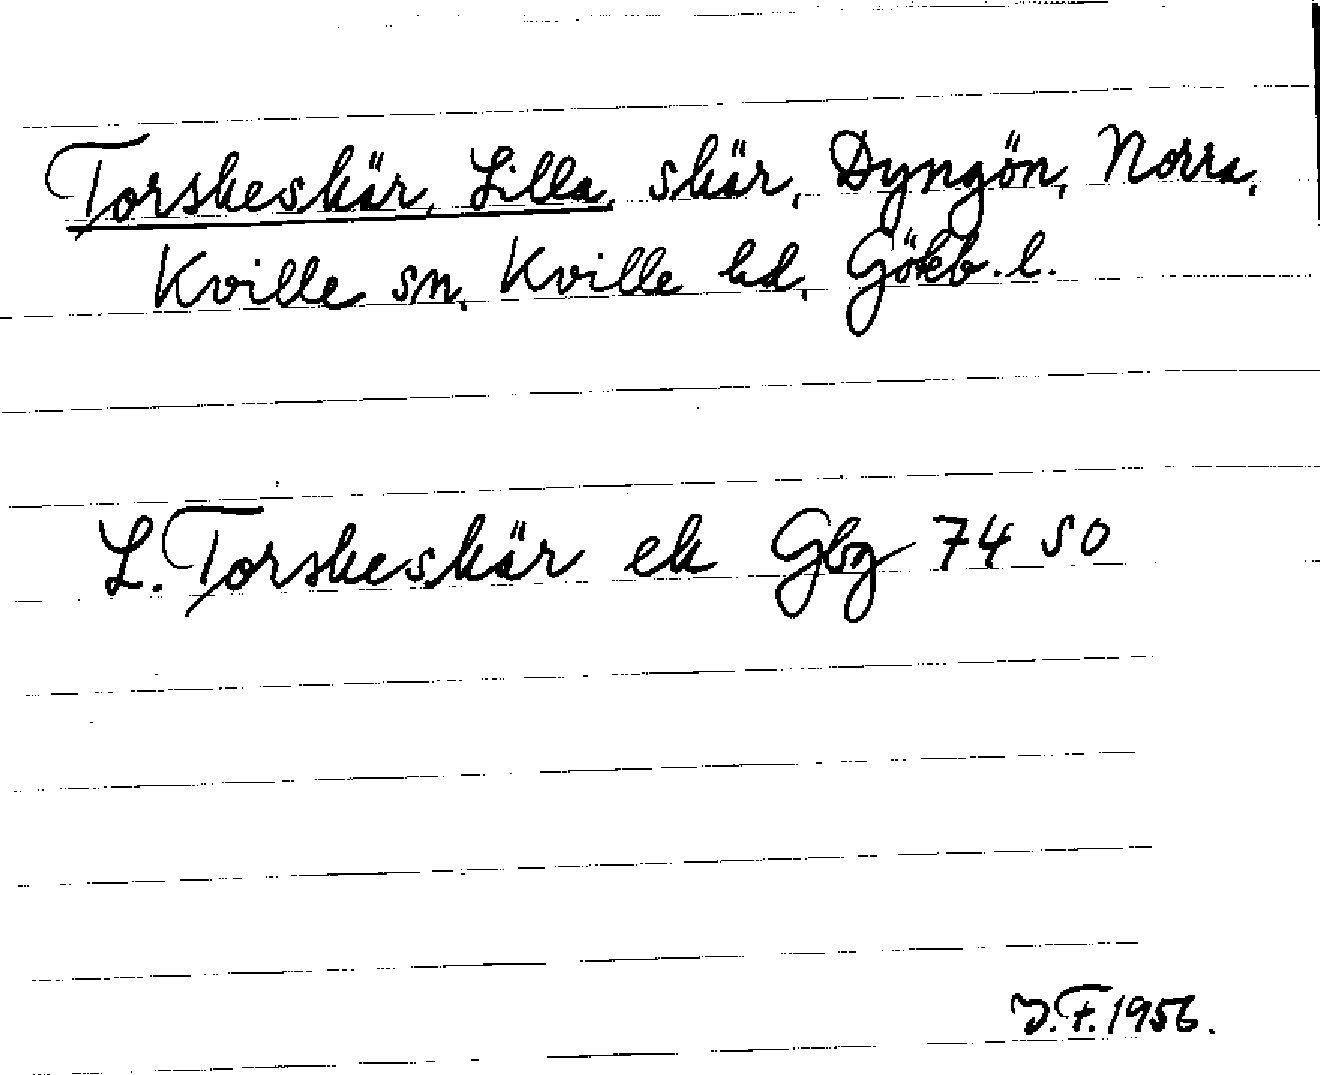 Torskeskär, Lilla, skär, Dyngön, Norra,
Kville sn, Kville hd, Götkb. l.
L. Torskeskär ek Gbg 74 SO
J.F. 1956.